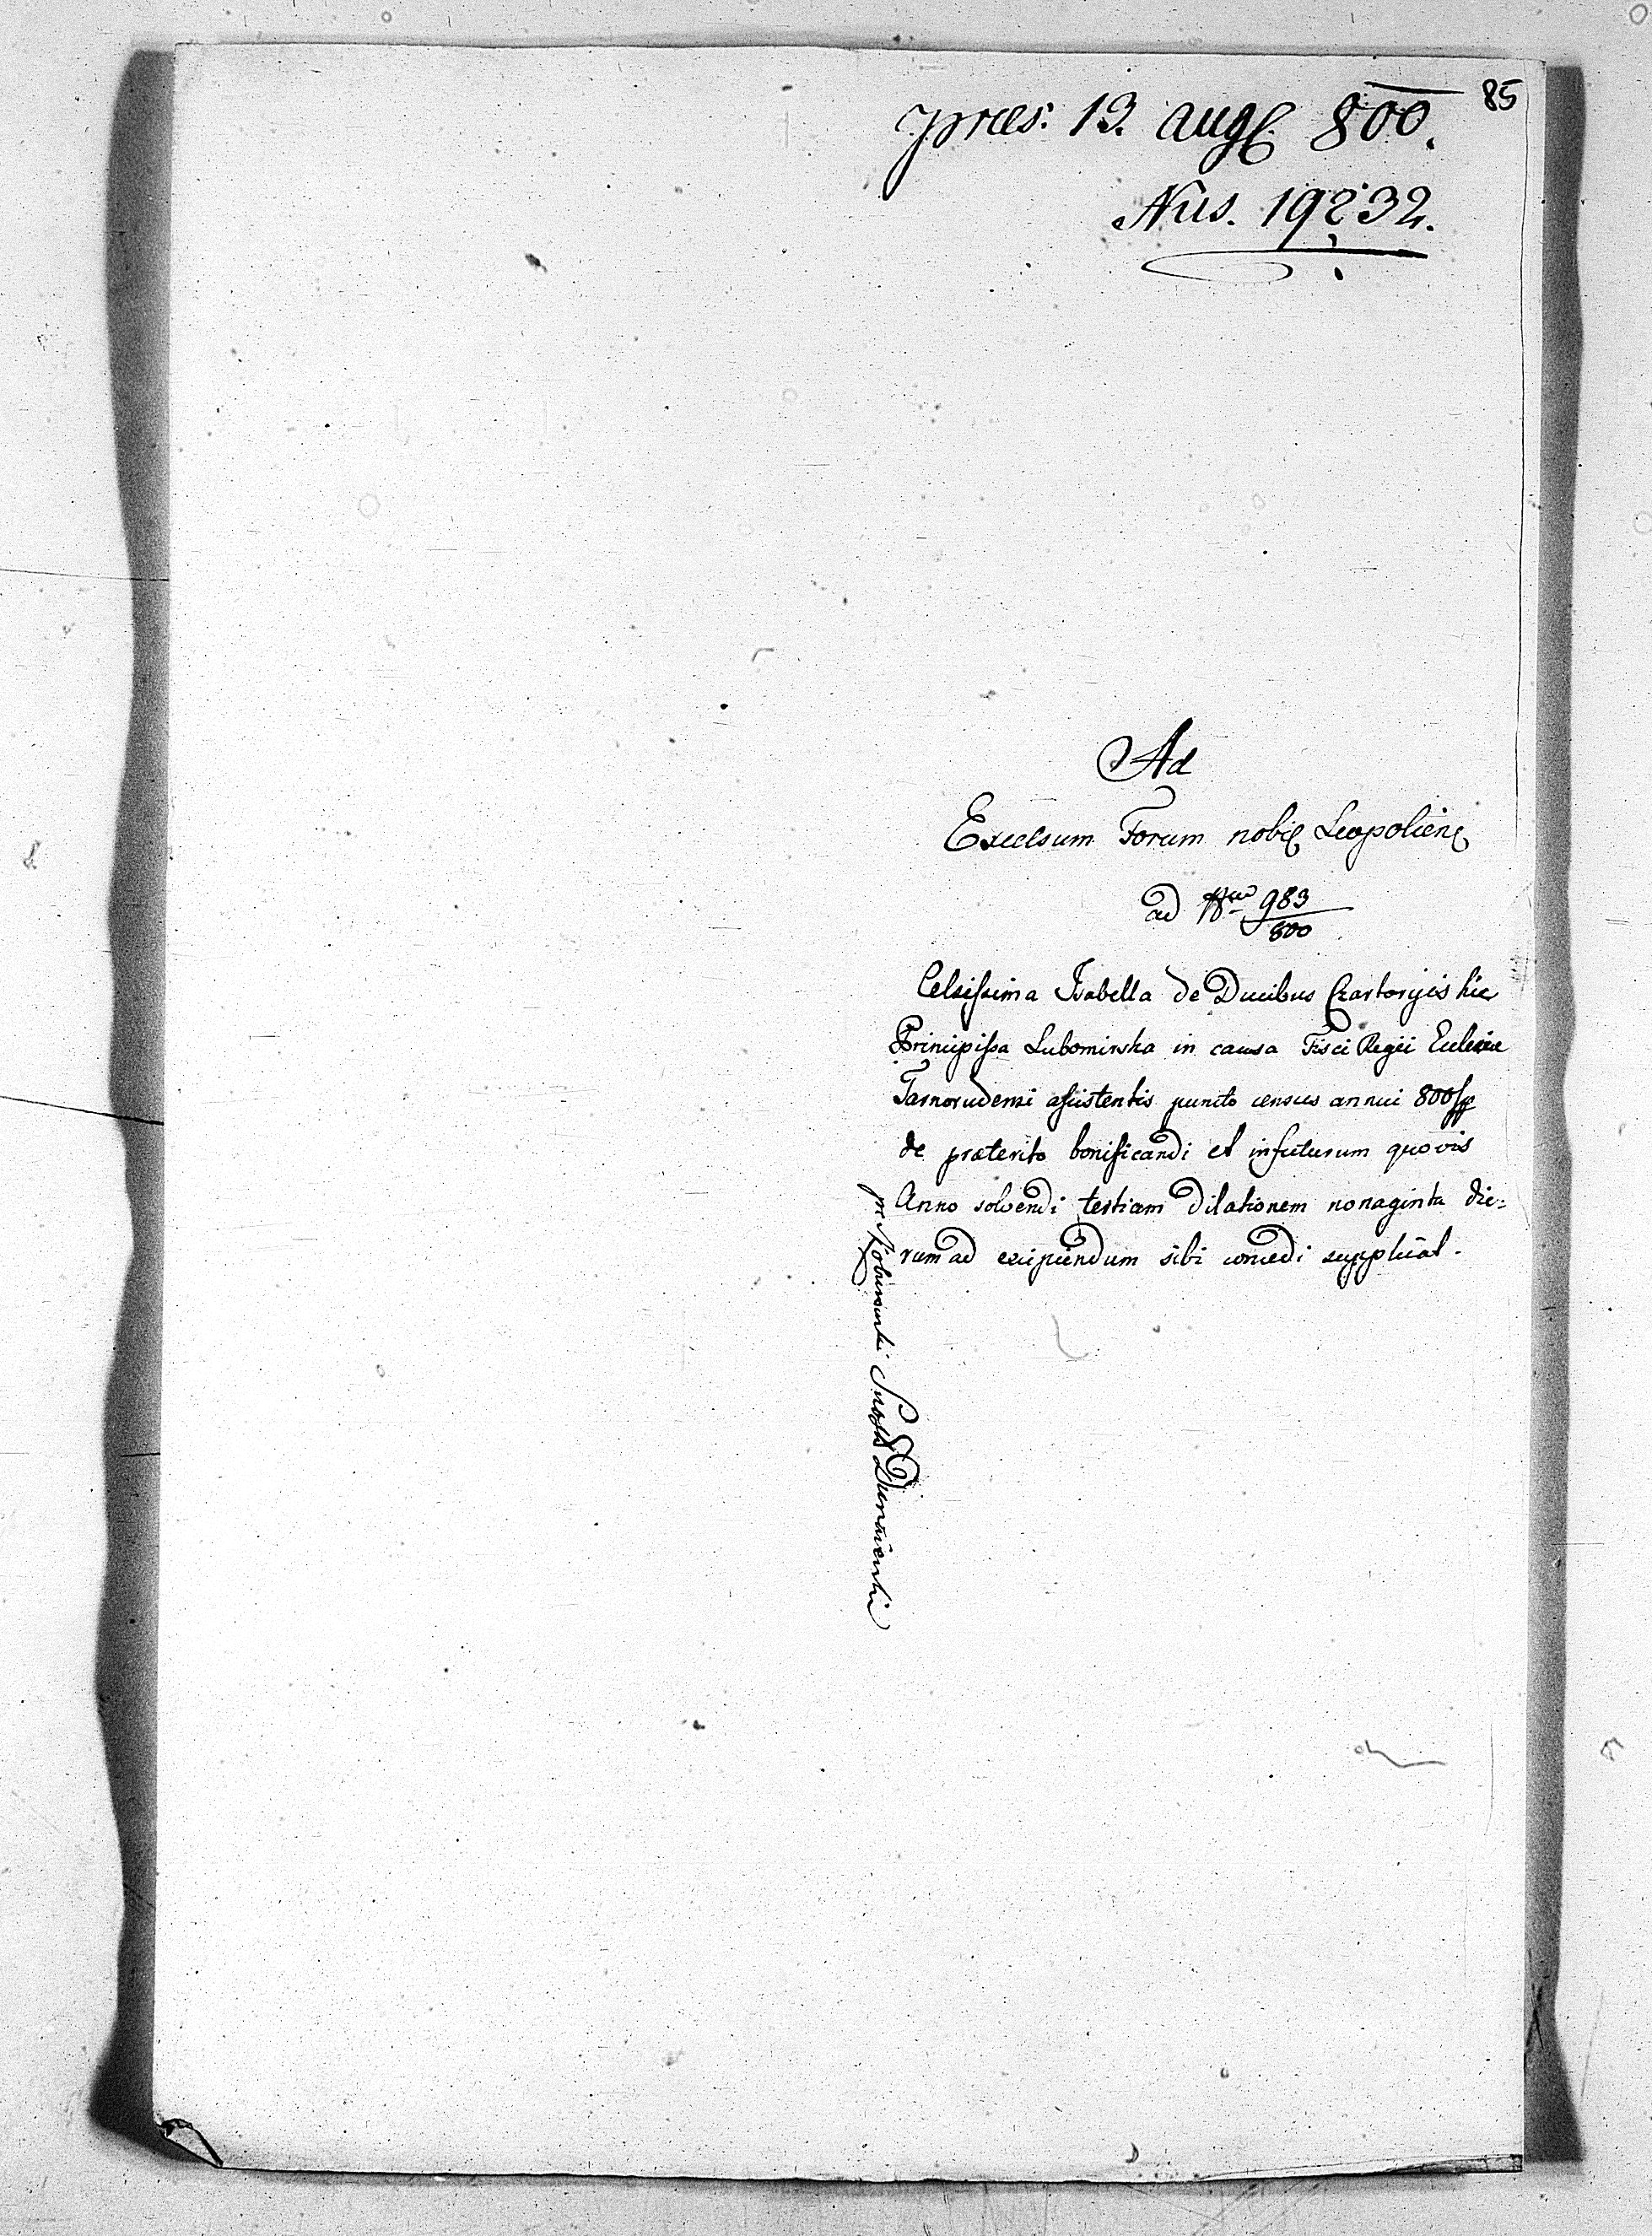 85
præs: 13. aug. 800.
Nus. 19232.
Ad
Excelsum Forum nobil Leopoliens
ad Nrum 983/800
Celsissima Isabella de Ducibus Czartoryis kie
Principissa Lubomirska in causa Fisci Regii Ecclesiae
Tarnorudensi assistentis puncto census annui 800
de præterito bonificandi et infuturum quovis
Anno solvendi tertiam Dilationem nonaginta die-
rum ad excipiendum sibi concedi supplicat.